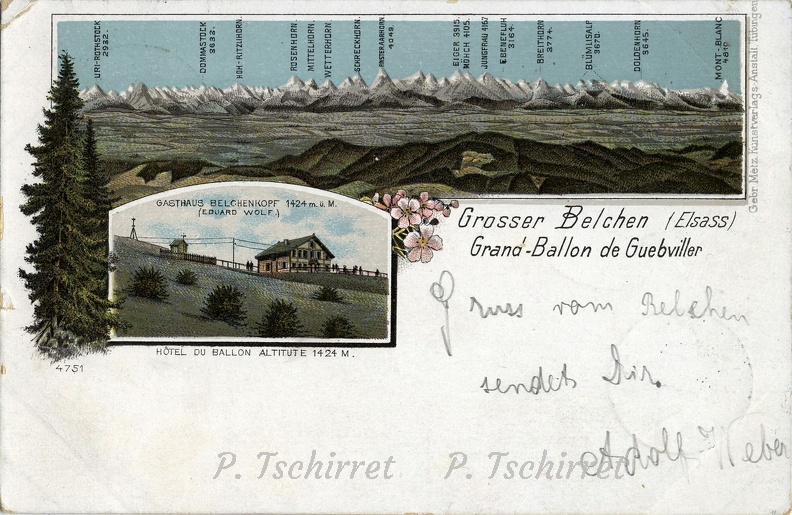 URI-ROTHSTOCK 2932.
DOMMASTOCK 3633.
ROH-RITZLIHORN.
ROSENHORN.
MITTELHORN
WETTERHORN.
SCHRECKHORN.
FINSTERAARHORN 4049.
EIGER 3915.
MÖNCH 4105.
JUNGFRAU 4167
EBENEFLUH 3164
BREITHORN 3774.
BLÜMLISALP 3670.
DOLDENHORN 3645.
MONT-BLANC 4810
Gebr. Metz, Kunstverlags-Anstalt, Tübingen
GASTHAUS BELCHENKOPF 1424 m.ü.M.
(EDUARD WOLF.)
HÔTEL DU BALLON ALTITUTE 1424 M.
4751
Grosser Belchen (Elsass)
Grand-Ballon de Guebviller
Gruss vom Belchen
sendet Dir.
Adolf Weber
P. Tschirret P. Tschirret